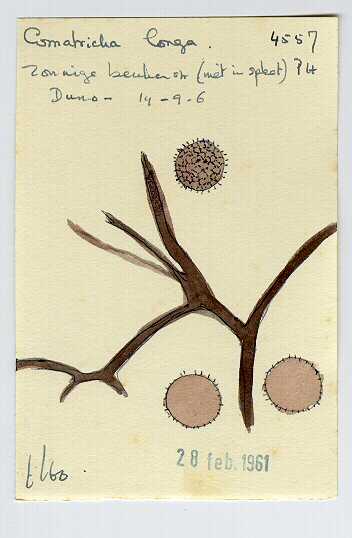 Comatricha longa. 4557
zonnige beukenstr (niet in spleet)
Duno - 14-9-6
28 feb. 1961